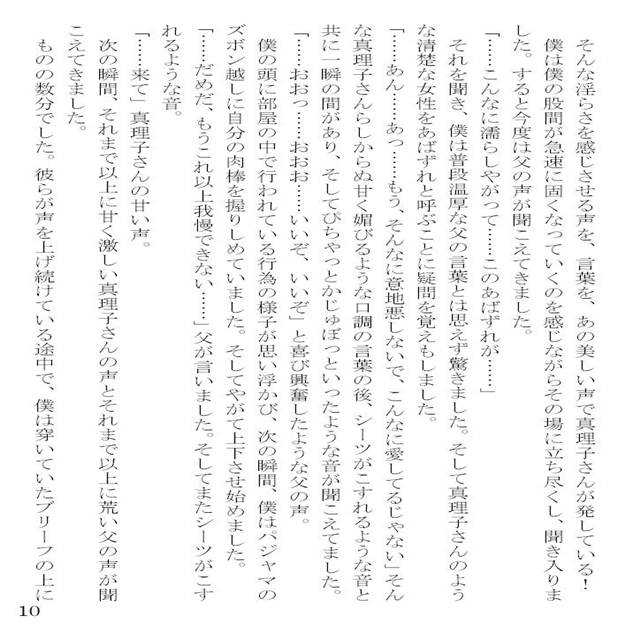 そんな淫らさを感じさせる声を、言葉を、あの美しい声で真理子さんが発している！
僕は僕の股間が急速に固くなっていくのを感じながらその場に立ち尽くし、聞き入りま
した。すると今度は父の声が聞こえてきました。
「……こんなに濡らしやがって……このあばずれが……」
それを聞き、僕は普段温厚な父の言葉とは思えず驚きました。そして真理子さんのよう
な清楚な女性をあばずれと呼ぶことに疑問を覚えもしました。
「……あん……あっ……もう、そんなに意地悪しないで、こんなに愛してるじゃない」そん
な真理子さんらしからぬ甘く媚びるような口調の言葉の後、シーツがこすれるような音と
共に一瞬の間があり、そしてぴちゃっとかじゅぼっといったような音が聞こえてました。
「……おおっ……おおお……いいぞ、いいぞ」と喜び興奮したような父の声。
僕の頭に部屋の中で行われている行為の様子が思い浮かび、次の瞬間、僕はパジャマの
ズボン越しに自分の肉棒を握りしめていました。そしてやがて上下させ始めました。
「……だめだ、もうこれ以上我慢できない……」父が言いました。そしてまたシーツがこす
れるような音。
「……来て」真理子さんの甘い声。
次の瞬間、それまで以上に甘く激しい真理子さんの声とそれまで以上に荒い父の声が聞
こえてきました。
ものの数分でした。彼らが声を上げ続けている途中で、僕は穿いていたブリーフの上に
10